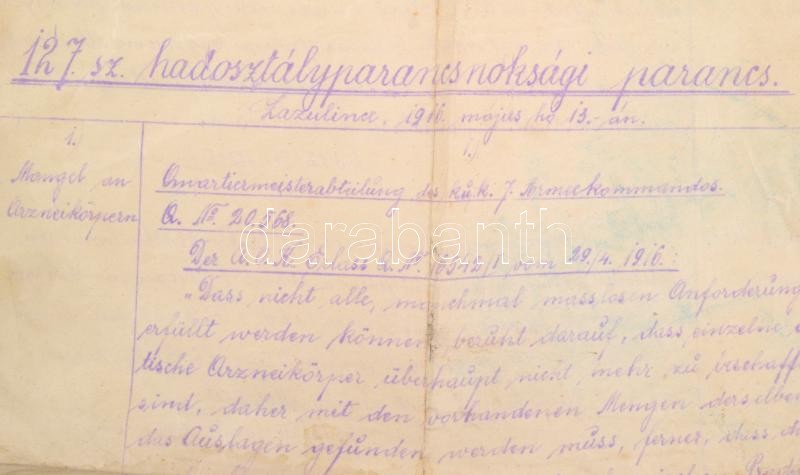 127. sz. hadosztályparancsnoksági parancs.
Lazulince, 1916. május hó 13.-án.
1.)
1.)
Mangel an
Arzneikörpern
Quartiermeisterabteilung des k.u.k. 7. Armeekommandos.
Q. No. 20.568.
Der Erlass No. vom 29/4. 1916.:
"Dass nicht alle, manchmal masslosen Anforderung
erfüllt werden können, beruht darauf, dass einzelne
tische Arzneikörper überhaupt nicht mehr zu beschaff
sind, daher mit den vorhandenen Mengen derselben
das Auslagen gefunden werden muss, ferner, dass d
darabanth